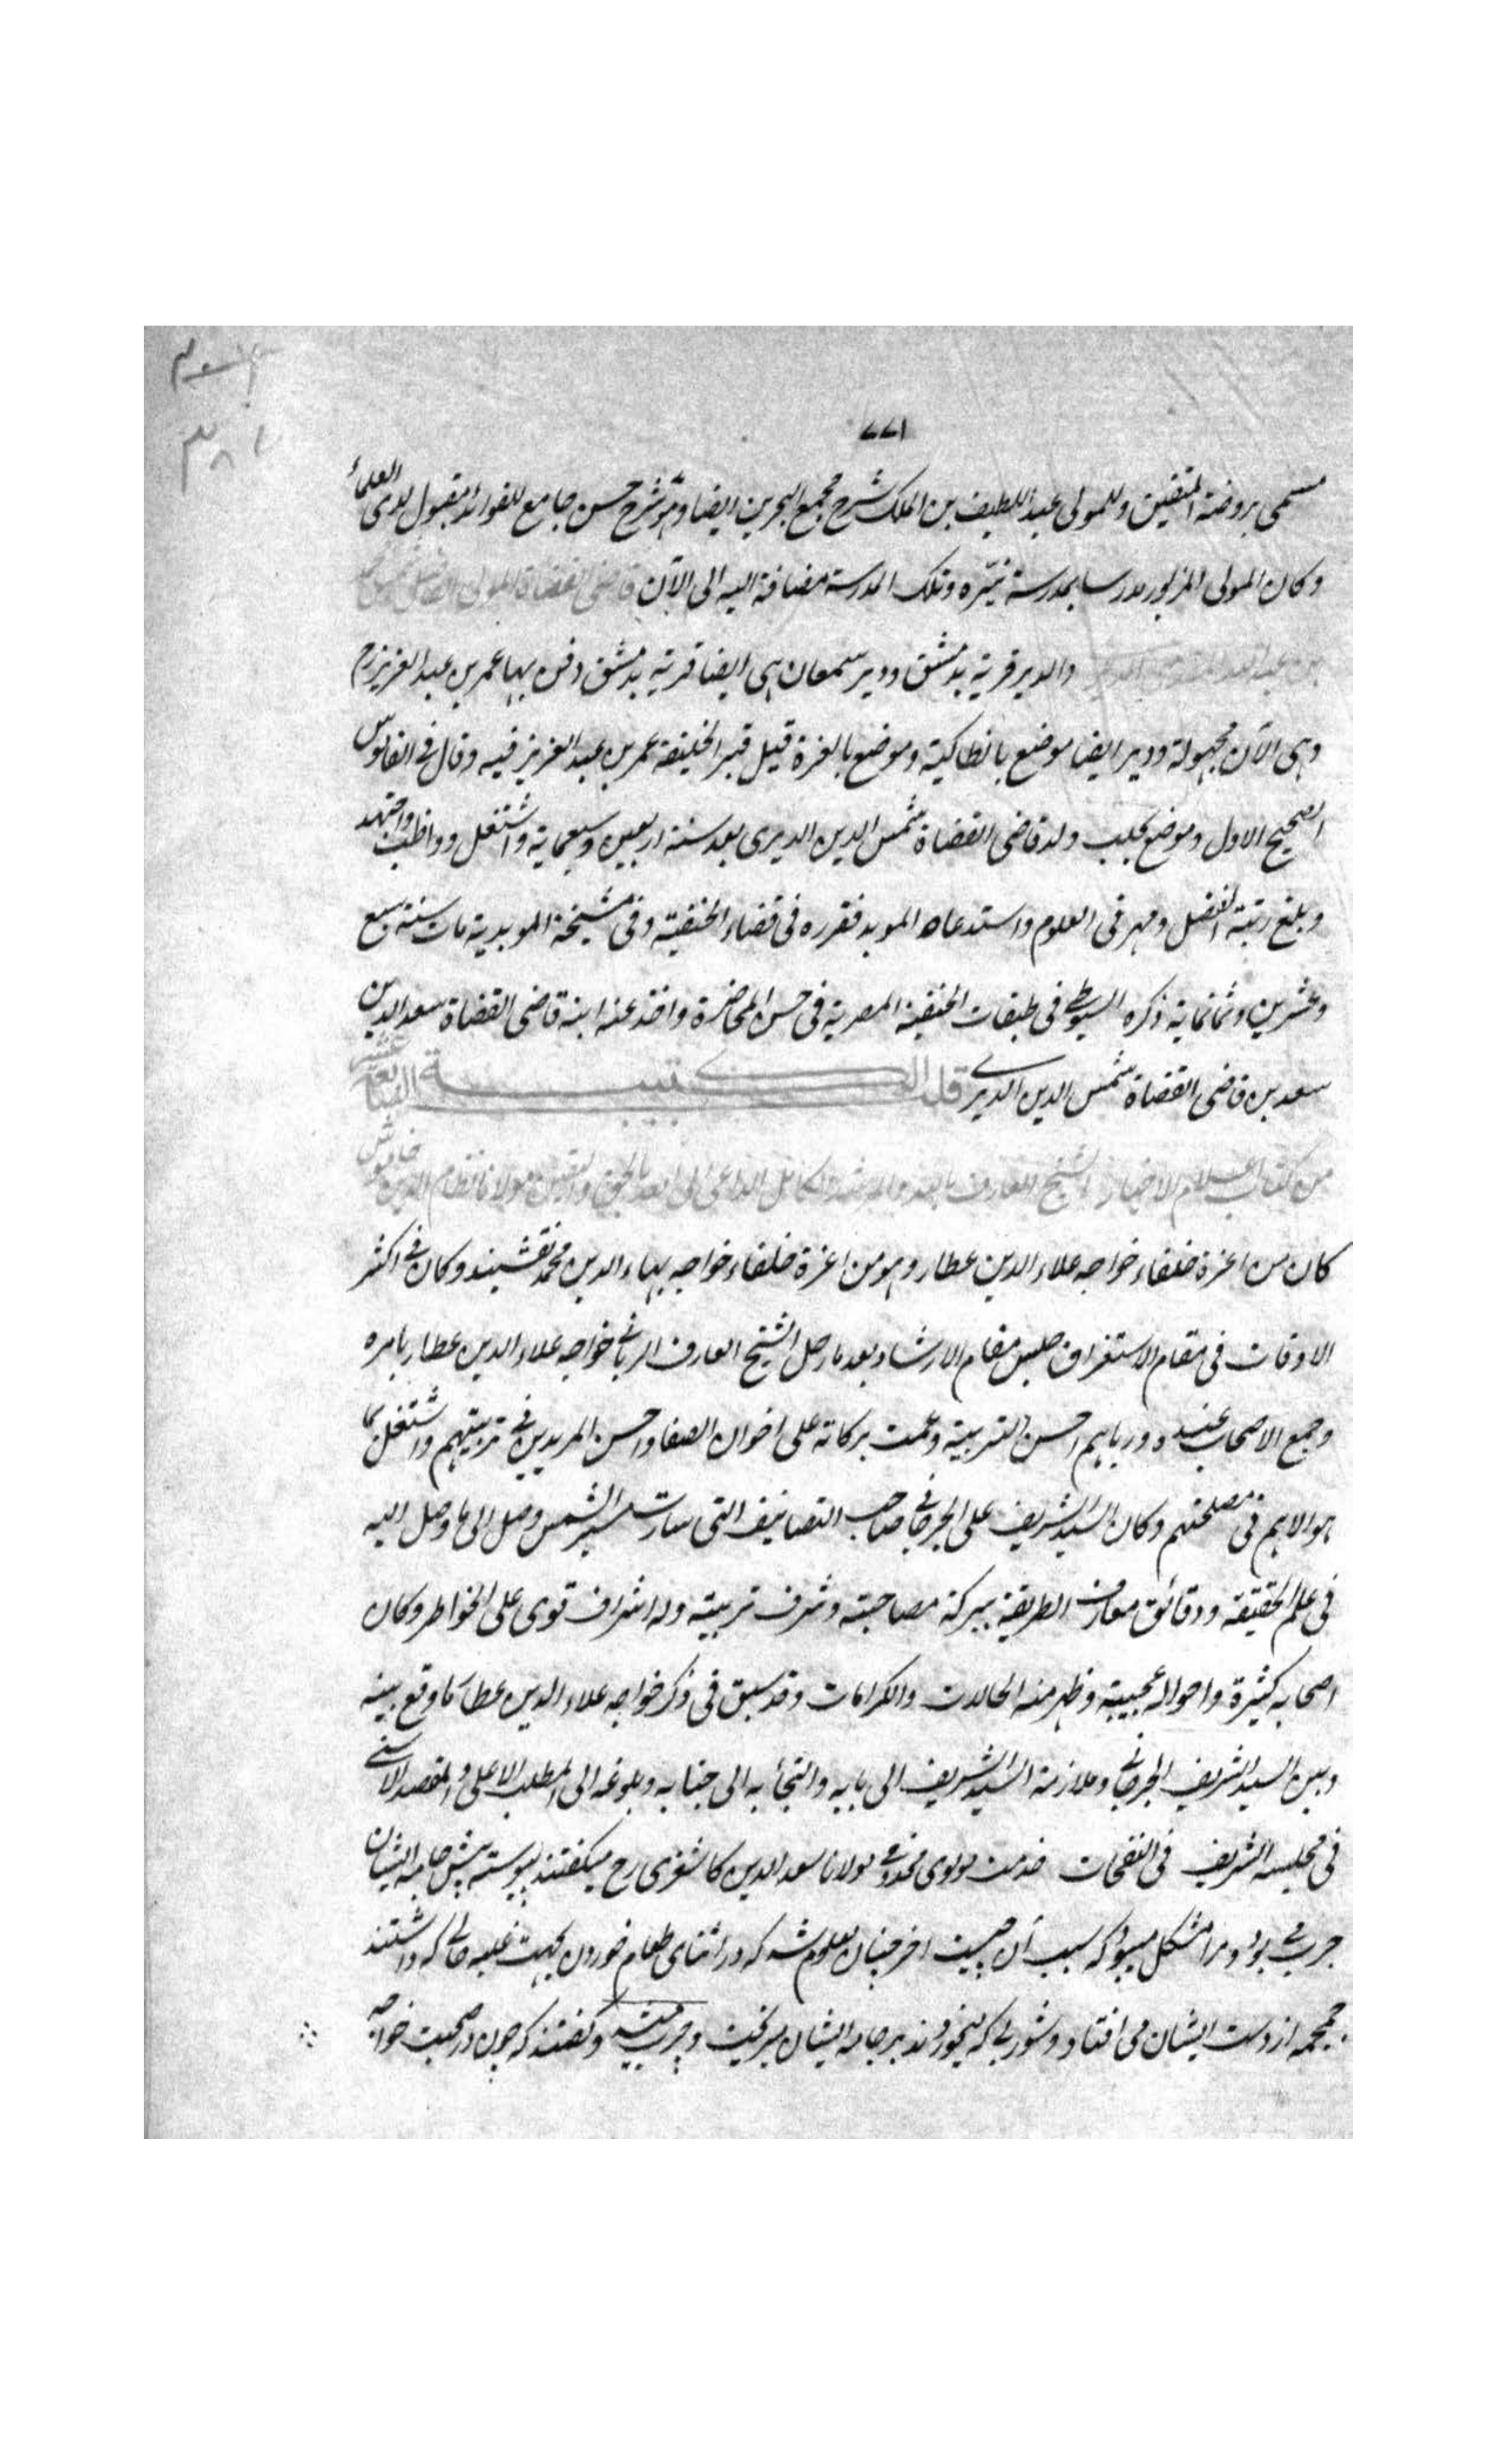 ٧٧١
مسمى بروضة المتقين وللمولى عبد اللطيف بن الملك شرح مجمع البحرين ايضا وهو شرح حسن جامع للفوائد مقبول لدى العلماء
وكان المولى المزبور مدرسا بمدرسة تيره وتلك المدرسة مضافة اليه الى الآن قاضى القضاة المولى الفاضل شمس
بن عبد الله والدير قرية بدمشق ودير سمعان هى ايضا قرية بدمشق دفن بها عمر بن عبد العزيز رح
وهى الآن مجهولة ودير ايضا موضع بانطاكية وموضع بالغزة قيل قبر الخليفة عمر بن عبد العزيز فيه وقال فى القاموس
الصحيح الاول وموضع بحلب ولد قاضى القضاة شمس الدين الديرى بعد سنة اربعين وسبعماية واشتغل وواظب واجتهد
وبلغ رتبة الفضل ومهر فى العلوم واستدعاه المويد فقرره فى قضاء الحنفية وفى مشيخة المويدية مات سنة سبع
وعشرين وثمانماية ذكره السيوطى فى طبقات الحنفية المصرية فى حسن المحاضرة واخذ عنه ابنه قاضى القضاة سعد الدين
سعد بن قاضى القضاة شمس الدين الديرى قلب الكتيبة الرابعة عشر
من كتاب اعلام الاخيار الشيخ العارف بالله والمرشد الكامل الداعى الى الله بالحق واليقين مولانا نظام الدين خاموش
كان من اعزة خلفاء خواجه علاء الدين عطار وهو من اعزة خلفاء خواجه بهاء الدين محمد نقشبند وكان فى اكثر
الاوقات فى مقام الاستغراق جلس مقام الارشاد بعد ما رحل الشيخ العارف الربانى خواجه علاء الدين عطار بامره
وجمع الاصحاب عنده ورباهم احسن التربية وعمت بركاته على اخوان الصفا واحسن المريدين فى تربيتهم واشتغل بما
هو الاهم فى مصلحتهم وكان السيد الشريف على الجرجانى صاحب التصانيف التى سارت سير الشمس وصل الى ما وصل اليه
فى علم الحقيقة ودقائق معارف الطريقة ببركة مصاحبته وشرف تربيته وله اشراف قوى على الخواطر وكان
اصحابه كثيرة واحواله عجيبة وظهر منه الحالات والكرامات وقد سبق فى ذكر خواجه علاء الدين عطار ما وقع بينه
وبين السيد الشريف الجرجانى وملازمة السيد الشريف الى بابه والتجأ به الى جنابه وبلوغه الى المطلب الاعلى والمقصد الاسنى
فى مجلسه الشريف فى النفحات خدمت مولوى مخدومى مولانا سعد الدين كاشغرى رح ميگفتند پيوسته پيش جامه ايشان
چرب مى بود ومرا مشكل ميبود كه سبب آن چيست اخر چنان معلوم شد كه در اثناى طعام خوردن بجهت غلبه حالى كه داشتند
جمجمه از دست ايشان مى افتاد وشوربايى كه ميخوردند بر جامه ايشان ميريخت وچرب ميشد وگفتند كه چون در صحبت خواجه